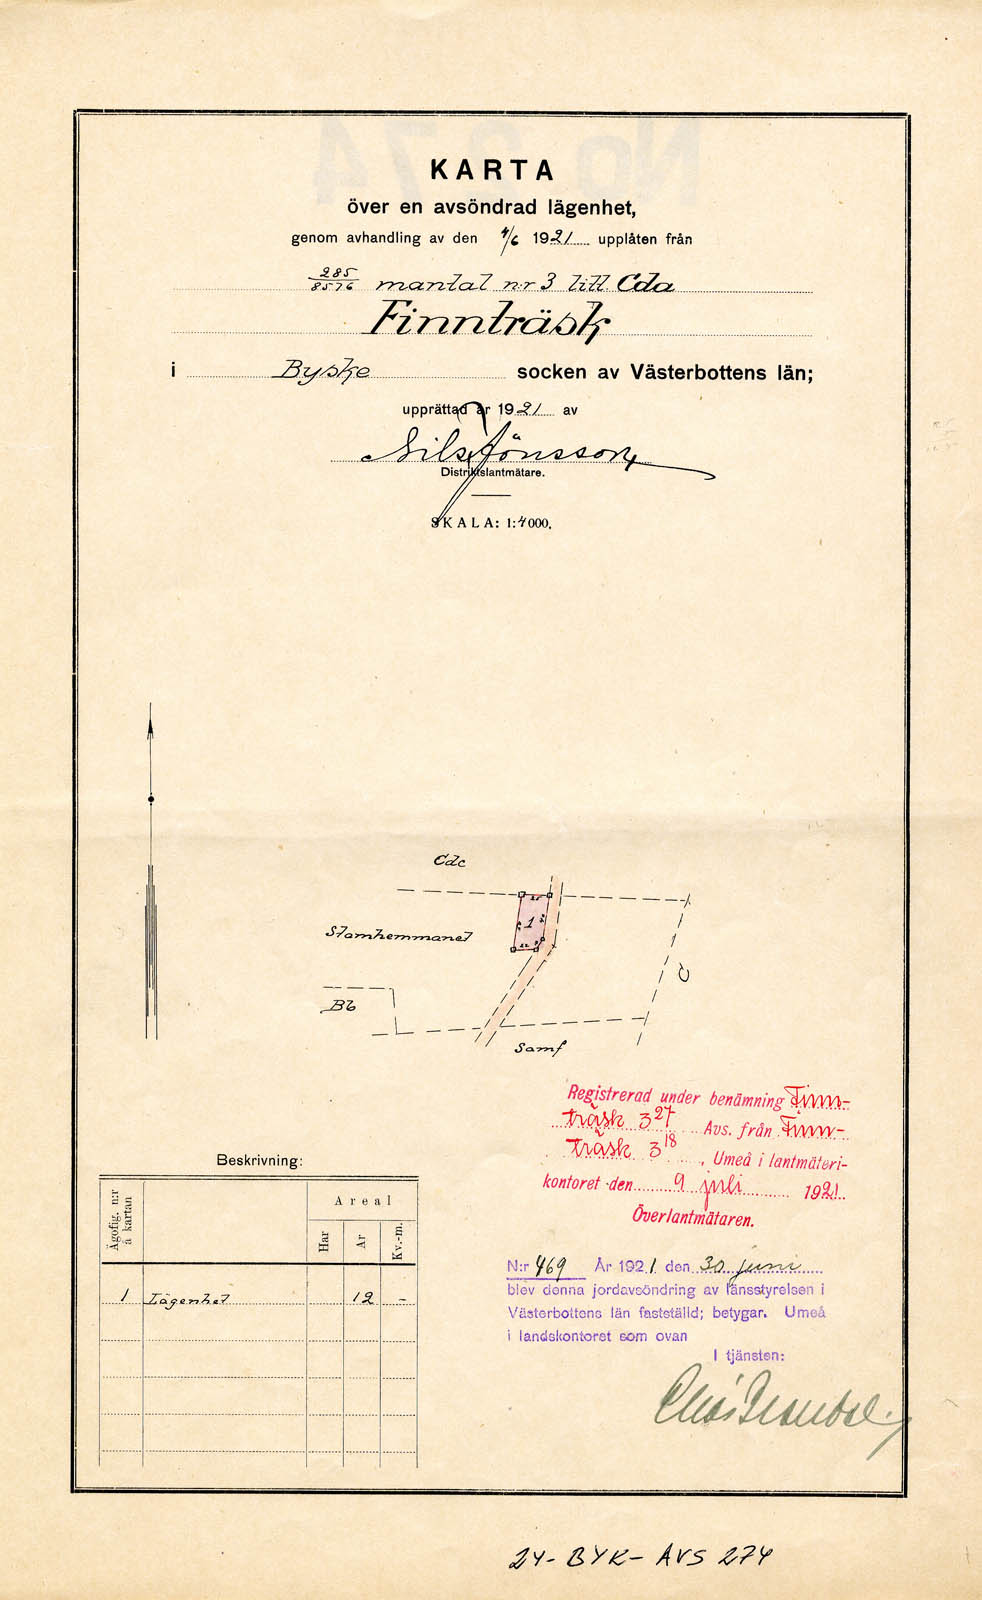 No 274
KARTA
över en avsöndrad lägenhet,
genom avhandling av den 4/6 1921 upplåten från
285/8576 mantal n:r 3 litt. Cda
Finnträsk
i Byske socken av Västerbottens län;
upprättad år 1921 av
Nils Jönsson
Distriktslantmätare.
SKALA: 1:4000.
Cdc
25
1
Stamhemmanet
22
C
Bb
Samf
Registrerad under benämning Finn-
träsk 3 27 Avs. från Finn-
träsk 3 18, Umeå i lantmäteri-
kontoret den 9 juli 1921.
Överlantmätaren.
Beskrivning:
Ägofig. n:r å kartan
Areal
Har
Ar
Kv.-m.
1 Lägenhet 12 -
N:r 469 År 1921 den 30 juni
blev denna jordavsöndring av länsstyrelsen i
Västerbottens län fastställd; betygar. Umeå
i landskontoret som ovan
I tjänsten:
24-BYK-AVS 274